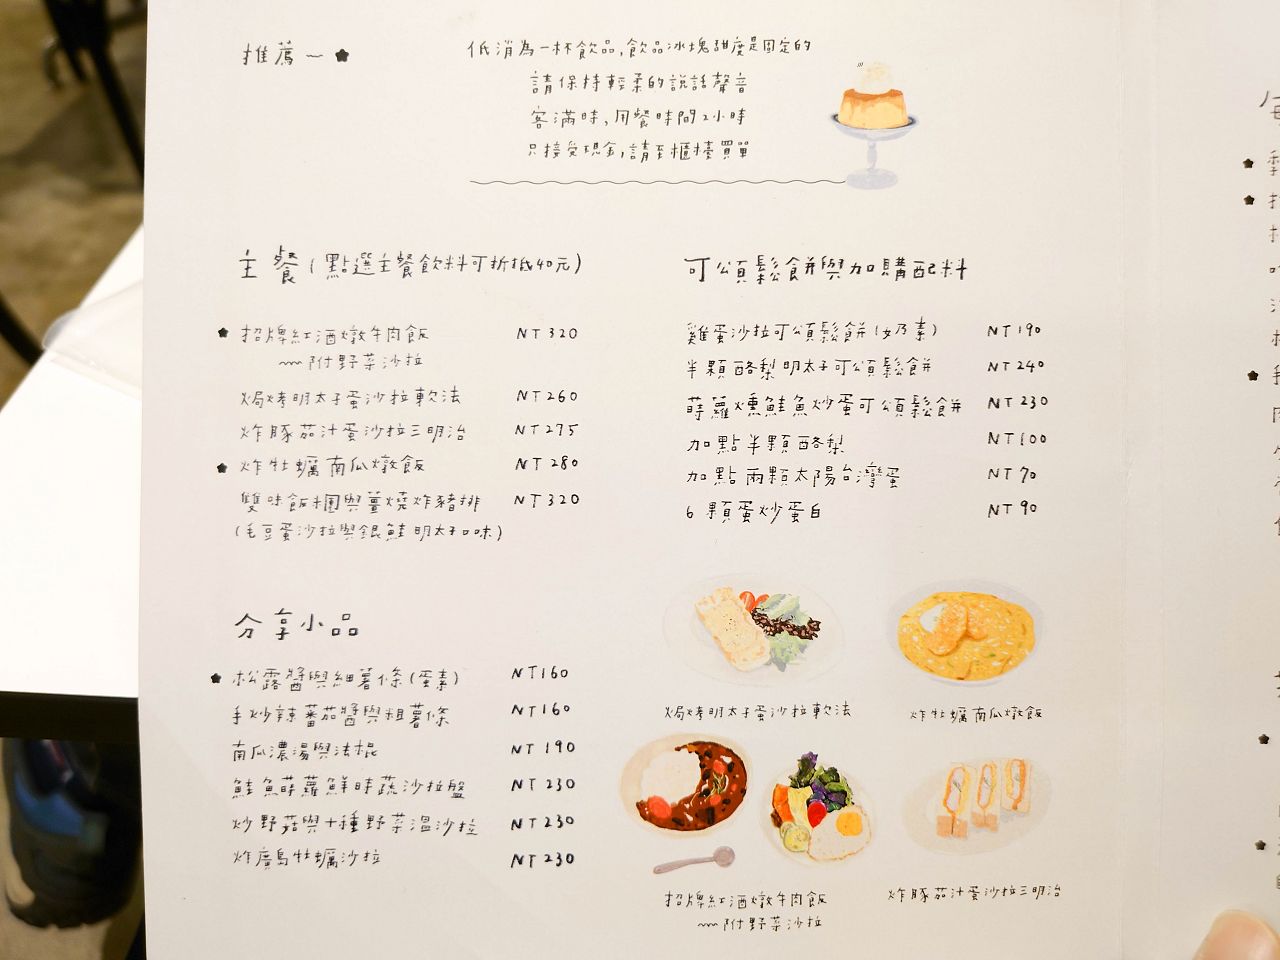 推薦～
低消為一杯飲品,飲品冰塊甜度是固定的
請保持輕柔的說話聲音
客滿時,用餐時間2小時
只接受現金,請至櫃檯買單
主餐(點選主餐飲料可折抵40元)
招牌紅酒燉牛肉飯 NT320
～附野菜沙拉
焗烤明太子蛋沙拉軟法 NT260
炸豚茄汁蛋沙拉三明治 NT275
炸牡蠣南瓜燉飯 NT280
雙味飯糰與薑燒炸豬排 NT320
(毛豆蛋沙拉與銀鮭明太子口味)
可頌鬆餅與加購配料
雞蛋沙拉可頌鬆餅(奶素) NT190
半顆酪梨明太子可頌鬆餅 NT240
蒔蘿燻鮭魚炒蛋可頌鬆餅 NT230
加點半顆酪梨 NT100
加點兩顆太陽台灣蛋 NT70
6顆蛋炒蛋白 NT90
分享小品
松露醬與細薯條(蛋素) NT160
手炒辣蕃茄醬與粗薯條 NT160
南瓜濃湯與法棍 NT190
鮭魚蒔蘿鮮時蔬沙拉盤 NT230
炒野菇與十種野菜溫沙拉 NT230
炸廣島牡蠣沙拉 NT230
焗烤明太子蛋沙拉軟法
炸牡蠣南瓜燉飯
招牌紅酒燉牛肉飯
～附野菜沙拉
炸豚茄汁蛋沙拉三明治